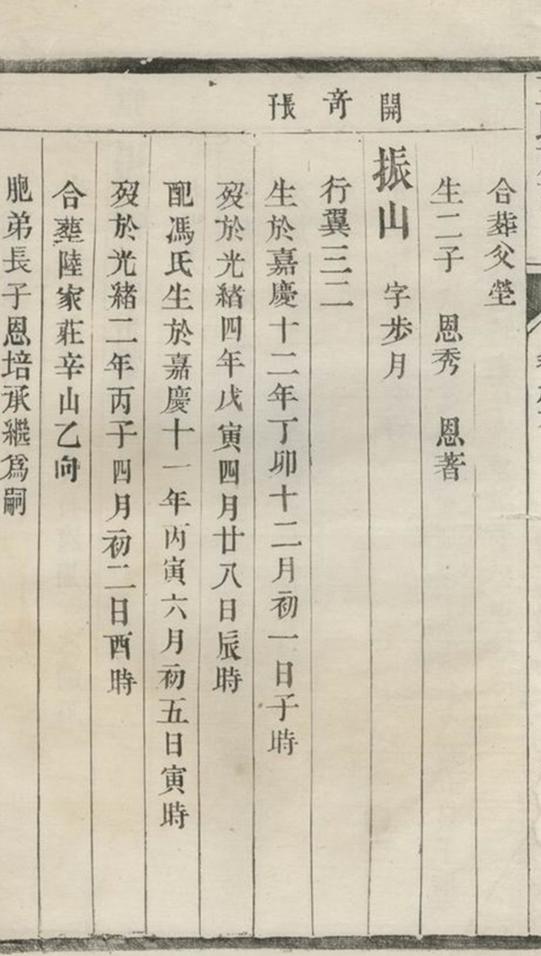 開奇張
合葬父塋
生二子 恩秀 恩著
振山 字步月
行翼三二
生於嘉慶十二年丁卯十二月初一日子時
歿於光緒四年戊寅四月廿八日辰時
配馮氏生於嘉慶十一年丙寅六月初五日寅時
歿於光緒二年丙子四月初二日酉時
合葬陸家莊辛山乙向
胞弟長子恩培承繼爲嗣